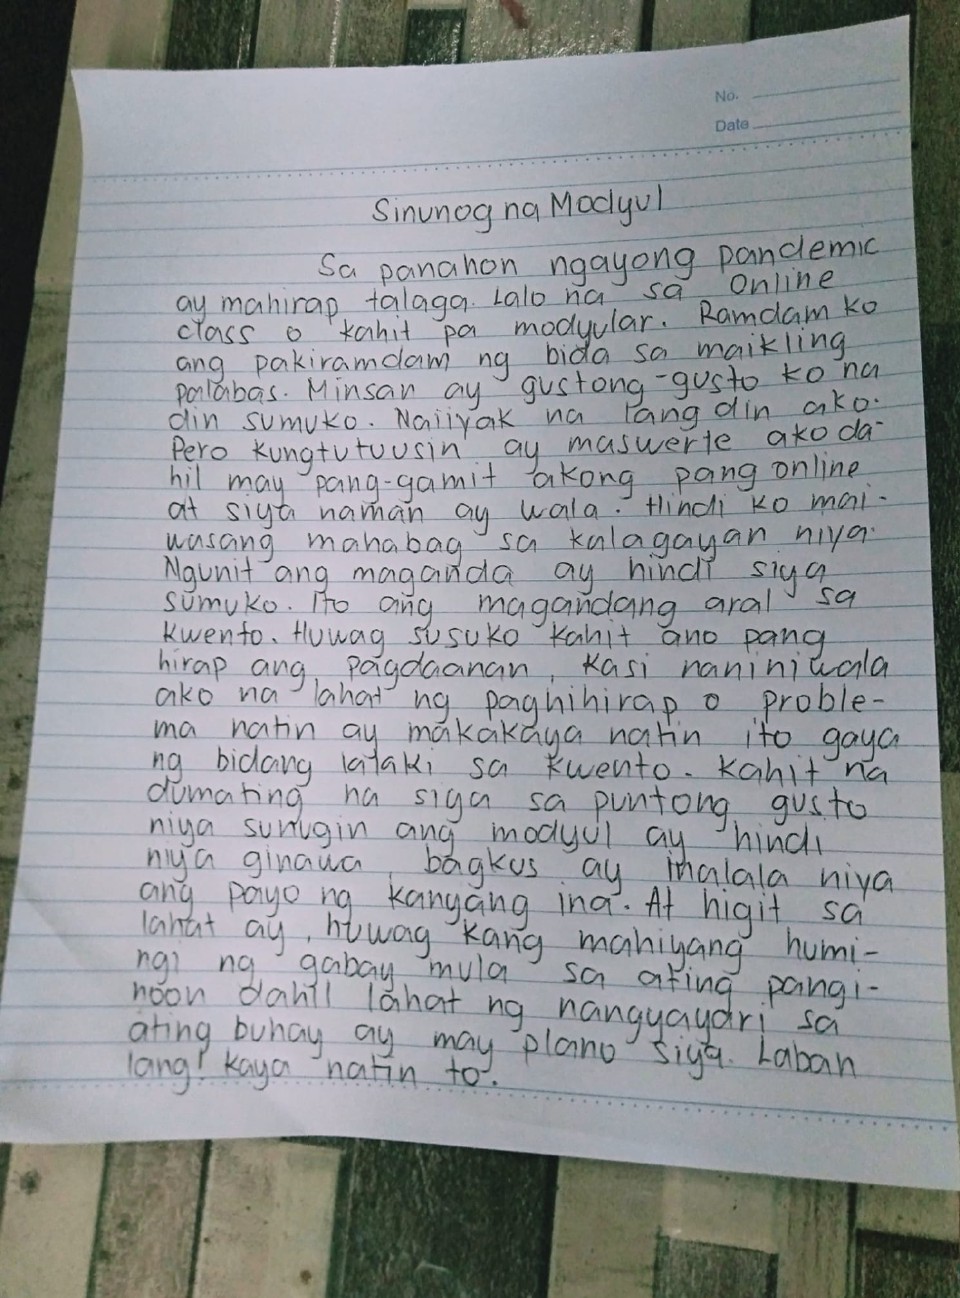 No.
Date
Sinunog na Modyul
Sa panahon ngayong pandemic
ay mahirap talaga. Lalo na sa Online
class o kahit pa modyular. Ramdam ko
ang pakiramdam ng bida sa maikling
palabas. Minsan ay gustong-gusto ko na
din sumuko. Naiiyak na lang din ako.
Pero kungtutuusin ay maswerte ako da-
hil may pang-gamit akong pang online
at siya naman ay wala. Hindi ko mai-
wasang mahabag sa kalagayan niya.
Ngunit ang maganda ay hindi siya
sumuko. Ito ang magandang aral sa
kwento. Huwag susuko kahit ano pang
hirap ang pagdaanan, kasi naniniwala
ako na lahat ng paghihirap o proble-
ma natin ay makakaya natin ito gaya
ng bidang lalaki sa kwento. Kahit na
dumating na siya sa puntong gusto
niya sunugin ang modyul ay hindi
niya ginawa, bagkus ay inalala niya
ang payo ng kanyang ina. At higit sa
lahat ay, huwag kang mahiyang humi-
ngi ng gabay mula sa ating pangi-
noon dahil lahat ng nangyayari sa
ating buhay ay may plano siya. Laban
lang! kaya natin to.